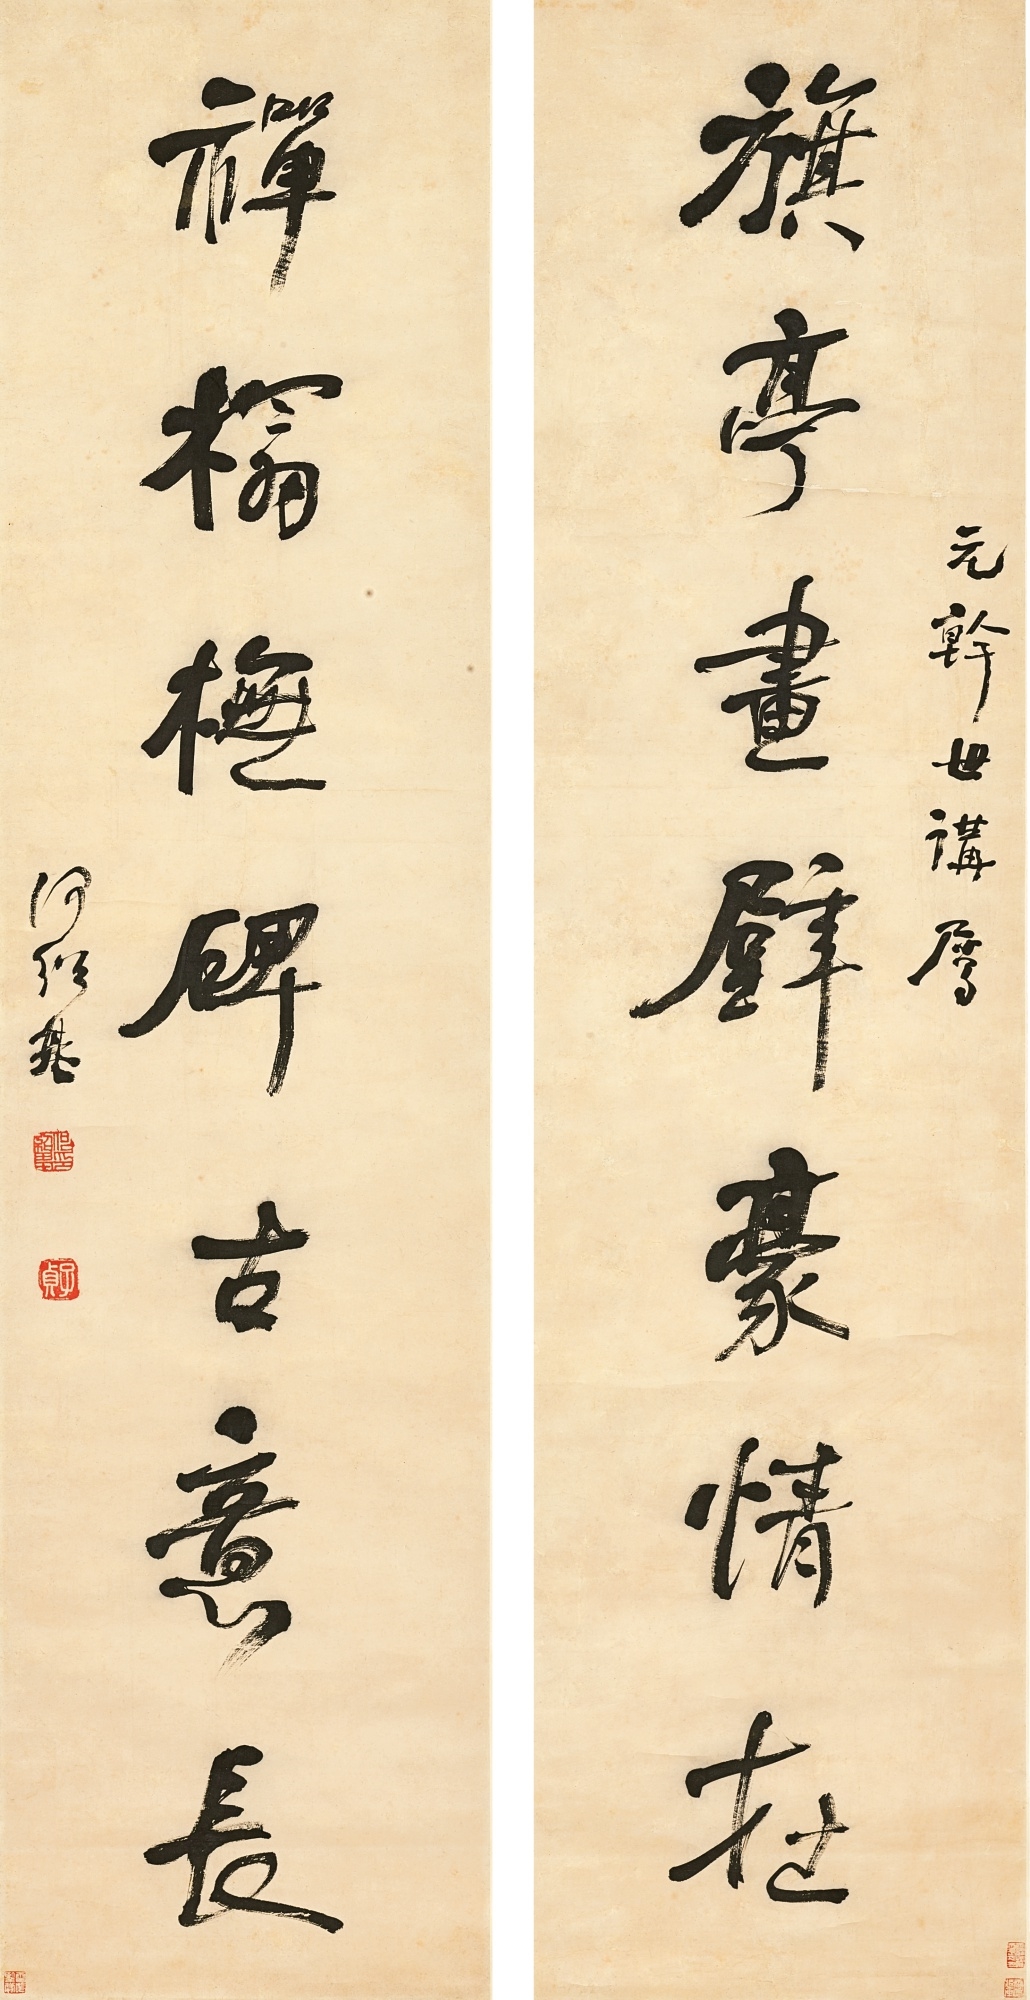 元幹世講屬
旗亭畫壁豪情在
禪榻橅碑古意長
何紹基
子貞